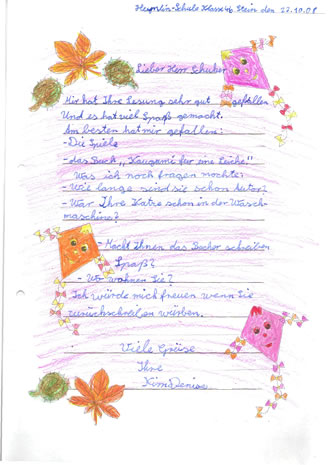 Schule Klasse 4b Stein den 22.10.08
Lieber Herr Schuber
Mir hat Ihre Lesung sehr gut gefallen
Und es hat viel Spaß gemacht.
Am besten hat mir gefallen:
- Die Spiele
- das Buch „Kaugami für eine Leiche!"
Was ich noch fragen mochte:
- Wie lange sind sie schon Autor?
- War Ihre Katze schon in der Wasch-
maschine?
- Macht Ihnen das Becher schreiben
Spaß?
- Wo wohnen Sie?
Ich würde mich freuen wenn Sie
zurückschreiben würben.
Viele Grüse
Ihre
Kim Denise